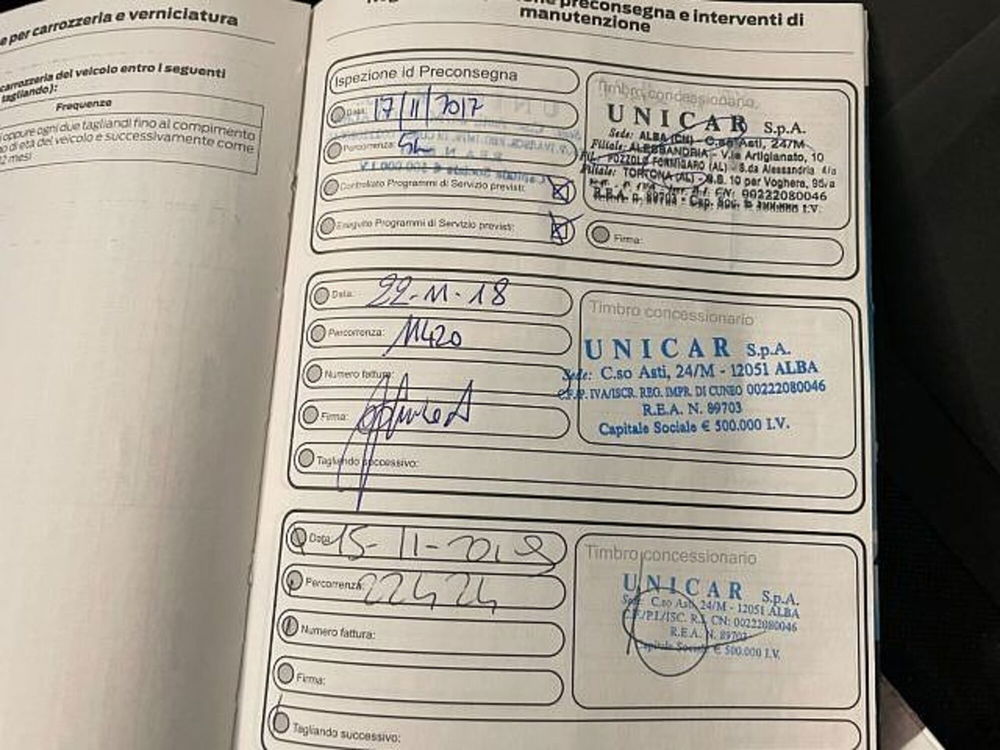 e per carrozzeria e verniciatura
carrozzeria del veicolo entro i seguenti
tagliando):
Frequenze
oppure ogni due tagliandi fino al compimento
o di età del veicolo e successivamente come
2 mesi
preconsegna e interventi di
manutenzione
Ispezione id Preconsegna
Data: 17/11/2017
Percorrenza:
Controllato Programmi di Servizio previsti:
Eseguito Programmi di Servizio previsti:
Timbro concessionario
UNICAR S.p.A.
Sede: ALBA (CN) - C.so Asti, 24/M
Filiale: ALESSANDRIA - V.le Artigianato, 10
FIL. POZZOLO FORMIGARO (AL) - S.da Alessandria
Filiale: TORTONA (AL) - S.S. 10 per Voghera, 95/a
CN: 00222080046
R.E.A. n. 89703 - Cap. Soc. I.V.
Firma:
Data: 22-11-18
Percorrenza: 11420
Numero fattura:
Firma:
Tagliando successivo:
Timbro concessionario
UNICAR S.p.A.
Sede: C.so Asti, 24/M - 12051 ALBA
C.F./P. IVA/ISCR. REG. IMPR. DI CUNEO 00222080046
R.E.A. N. 89703
Capitale Sociale € 500.000 I.V.
Data: 15-11-2019
Percorrenza: 22424
Numero fattura:
Firma:
Tagliando successivo:
Timbro concessionario
UNICAR S.p.A.
Sede: C.so Asti, 24/M - 12051 ALBA
C.F./P.I./ISC. R.I. CN: 00222080046
R.E.A. N. 89703
Capitale Sociale € 500.000 I.V.